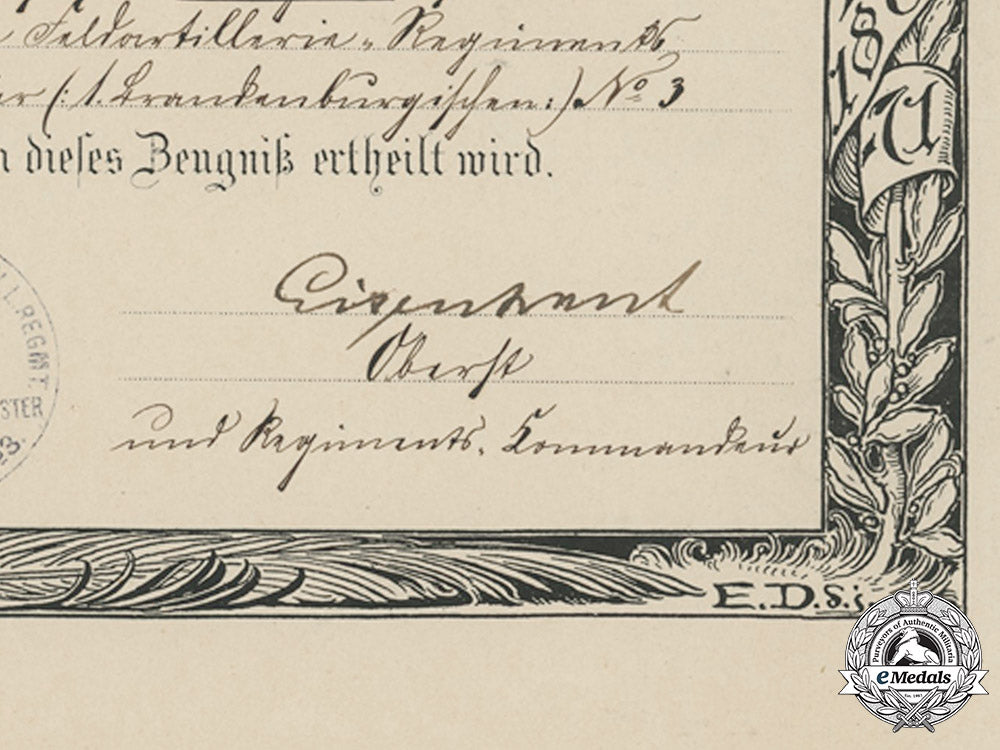 Feldartillerie-Regiments
(:1. Brandenburgischen:) No 3
dieses Zeugniß ertheilt wird.
Oberst
und Regiments-Commandeur
REGMT.
18
U
E.D.S.
Purveyors of Authentic Militaria
eMedals